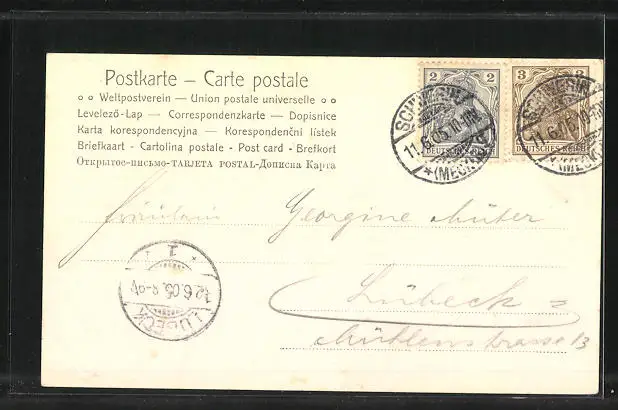 Postkarte — Carte postale
Weltpostverein — Union postale universelle
Levelező-Lap — Correspondenzkarte — Dopisnice
Karta korespondencyjna — Korespondenční lístek
Briefkaart - Cartolina postale - Post card - Brefkort
Открытое-письмо-TARJETA POSTAL-Дописна Карта
2 2
DEUTSCHES REICH
3 3
DEUTSCHES REICH
SCHWERIN
11.6.05. 10-11N.
*(MECKLB)
Fräulein Georgine Müter
Lübeck
Mühlenstrasse 13
1
12.6.05. 8-9V.
LÜBECK